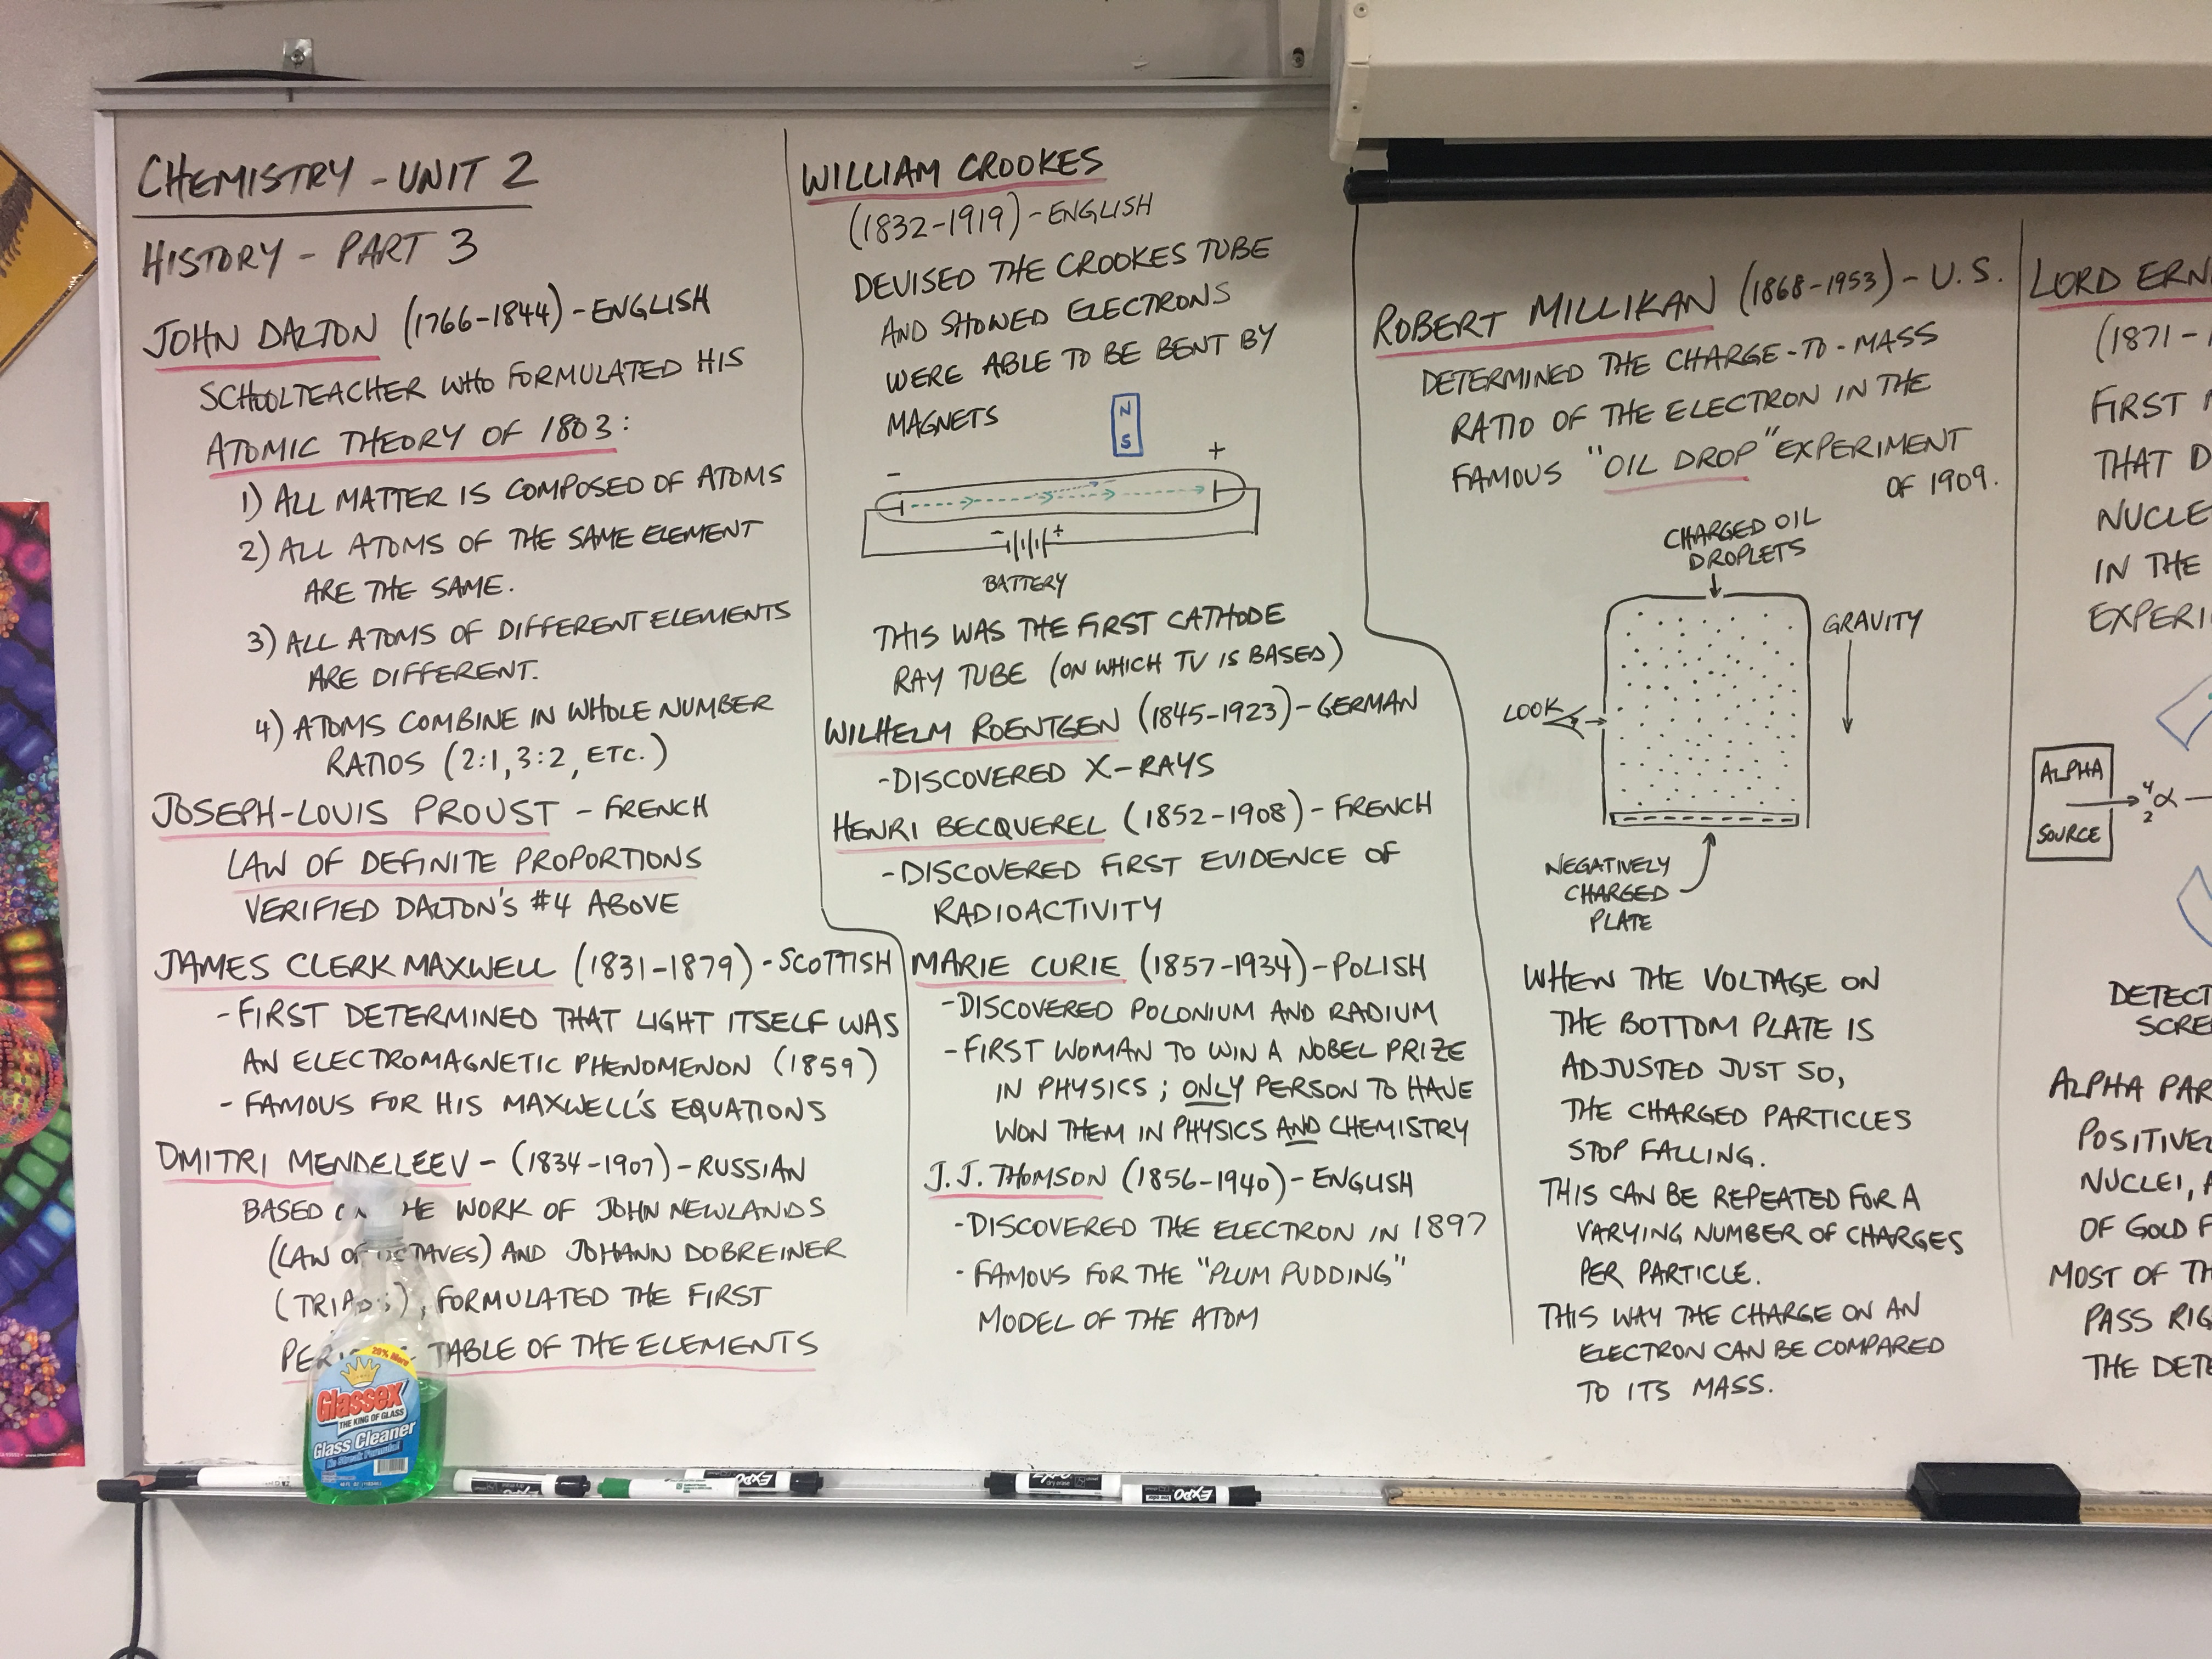 CHEMISTRY - UNIT 2
HISTORY - PART 3
JOHN DALTON (1766-1844) - ENGLISH
SCHOOLTEACHER WHO FORMULATED HIS
ATOMIC THEORY OF 1803:
1) ALL MATTER IS COMPOSED OF ATOMS
2) ALL ATOMS OF THE SAME ELEMENT
ARE THE SAME.
3) ALL ATOMS OF DIFFERENT ELEMENTS
ARE DIFFERENT.
4) ATOMS COMBINE IN WHOLE NUMBER
RATIOS (2:1, 3:2, ETC.)
JOSEPH-LOUIS PROUST - FRENCH
LAW OF DEFINITE PROPORTIONS
VERIFIED DALTON'S #4 ABOVE
JAMES CLERK MAXWELL (1831-1879) - SCOTTISH
- FIRST DETERMINED THAT LIGHT ITSELF WAS
AN ELECTROMAGNETIC PHENOMENON (1859)
- FAMOUS FOR HIS MAXWELL'S EQUATIONS
DMITRI MENDELEEV - (1834-1907) - RUSSIAN
BASED ON THE WORK OF JOHN NEWLANDS
(LAW OF OCTAVES) AND JOHANN DOBREINER
(TRIADS), FORMULATED THE FIRST
PERIODIC TABLE OF THE ELEMENTS
20% More
Glassex
THE KING OF GLASS
Glass Cleaner
No Streak Formula!
WILLIAM CROOKES
(1832-1919) - ENGLISH
DEVISED THE CROOKES TUBE
AND SHOWED ELECTRONS
WERE ABLE TO BE BENT BY
MAGNETS
N
S
- +
- +
BATTERY
THIS WAS THE FIRST CATHODE
RAY TUBE (ON WHICH TV IS BASED)
WILHELM ROENTGEN (1845-1923) - GERMAN
- DISCOVERED X-RAYS
HENRI BECQUEREL (1852-1908) - FRENCH
- DISCOVERED FIRST EVIDENCE OF
RADIOACTIVITY
MARIE CURIE (1857-1934) - POLISH
- DISCOVERED POLONIUM AND RADIUM
- FIRST WOMAN TO WIN A NOBEL PRIZE
IN PHYSICS; ONLY PERSON TO HAVE
WON THEM IN PHYSICS AND CHEMISTRY
J.J. THOMSON (1856-1940) - ENGLISH
- DISCOVERED THE ELECTRON IN 1897
- FAMOUS FOR THE "PLUM PUDDING"
MODEL OF THE ATOM
EXPO
EXPO
ROBERT MILLIKAN (1868-1953) - U.S.
DETERMINED THE CHARGE-TO-MASS
RATIO OF THE ELECTRON IN THE
FAMOUS "OIL DROP" EXPERIMENT
OF 1909.
CHARGED OIL
DROPLETS
GRAVITY
LOOK
NEGATIVELY
CHARGED
PLATE
WHEN THE VOLTAGE ON
THE BOTTOM PLATE IS
ADJUSTED JUST SO,
THE CHARGED PARTICLES
STOP FALLING.
THIS CAN BE REPEATED FOR A
VARYING NUMBER OF CHARGES
PER PARTICLE.
THIS WAY THE CHARGE ON AN
ELECTRON CAN BE COMPARED
TO ITS MASS.
LORD ERN
(1871 -
FIRST
THAT D
NUCLE
IN THE
EXPERI
ALPHA
SOURCE
4
2 α
DETECT
SCRE
ALPHA PAR
POSITIVEL
NUCLEI,
OF GOLD F
MOST OF TH
PASS RIG
THE DETE